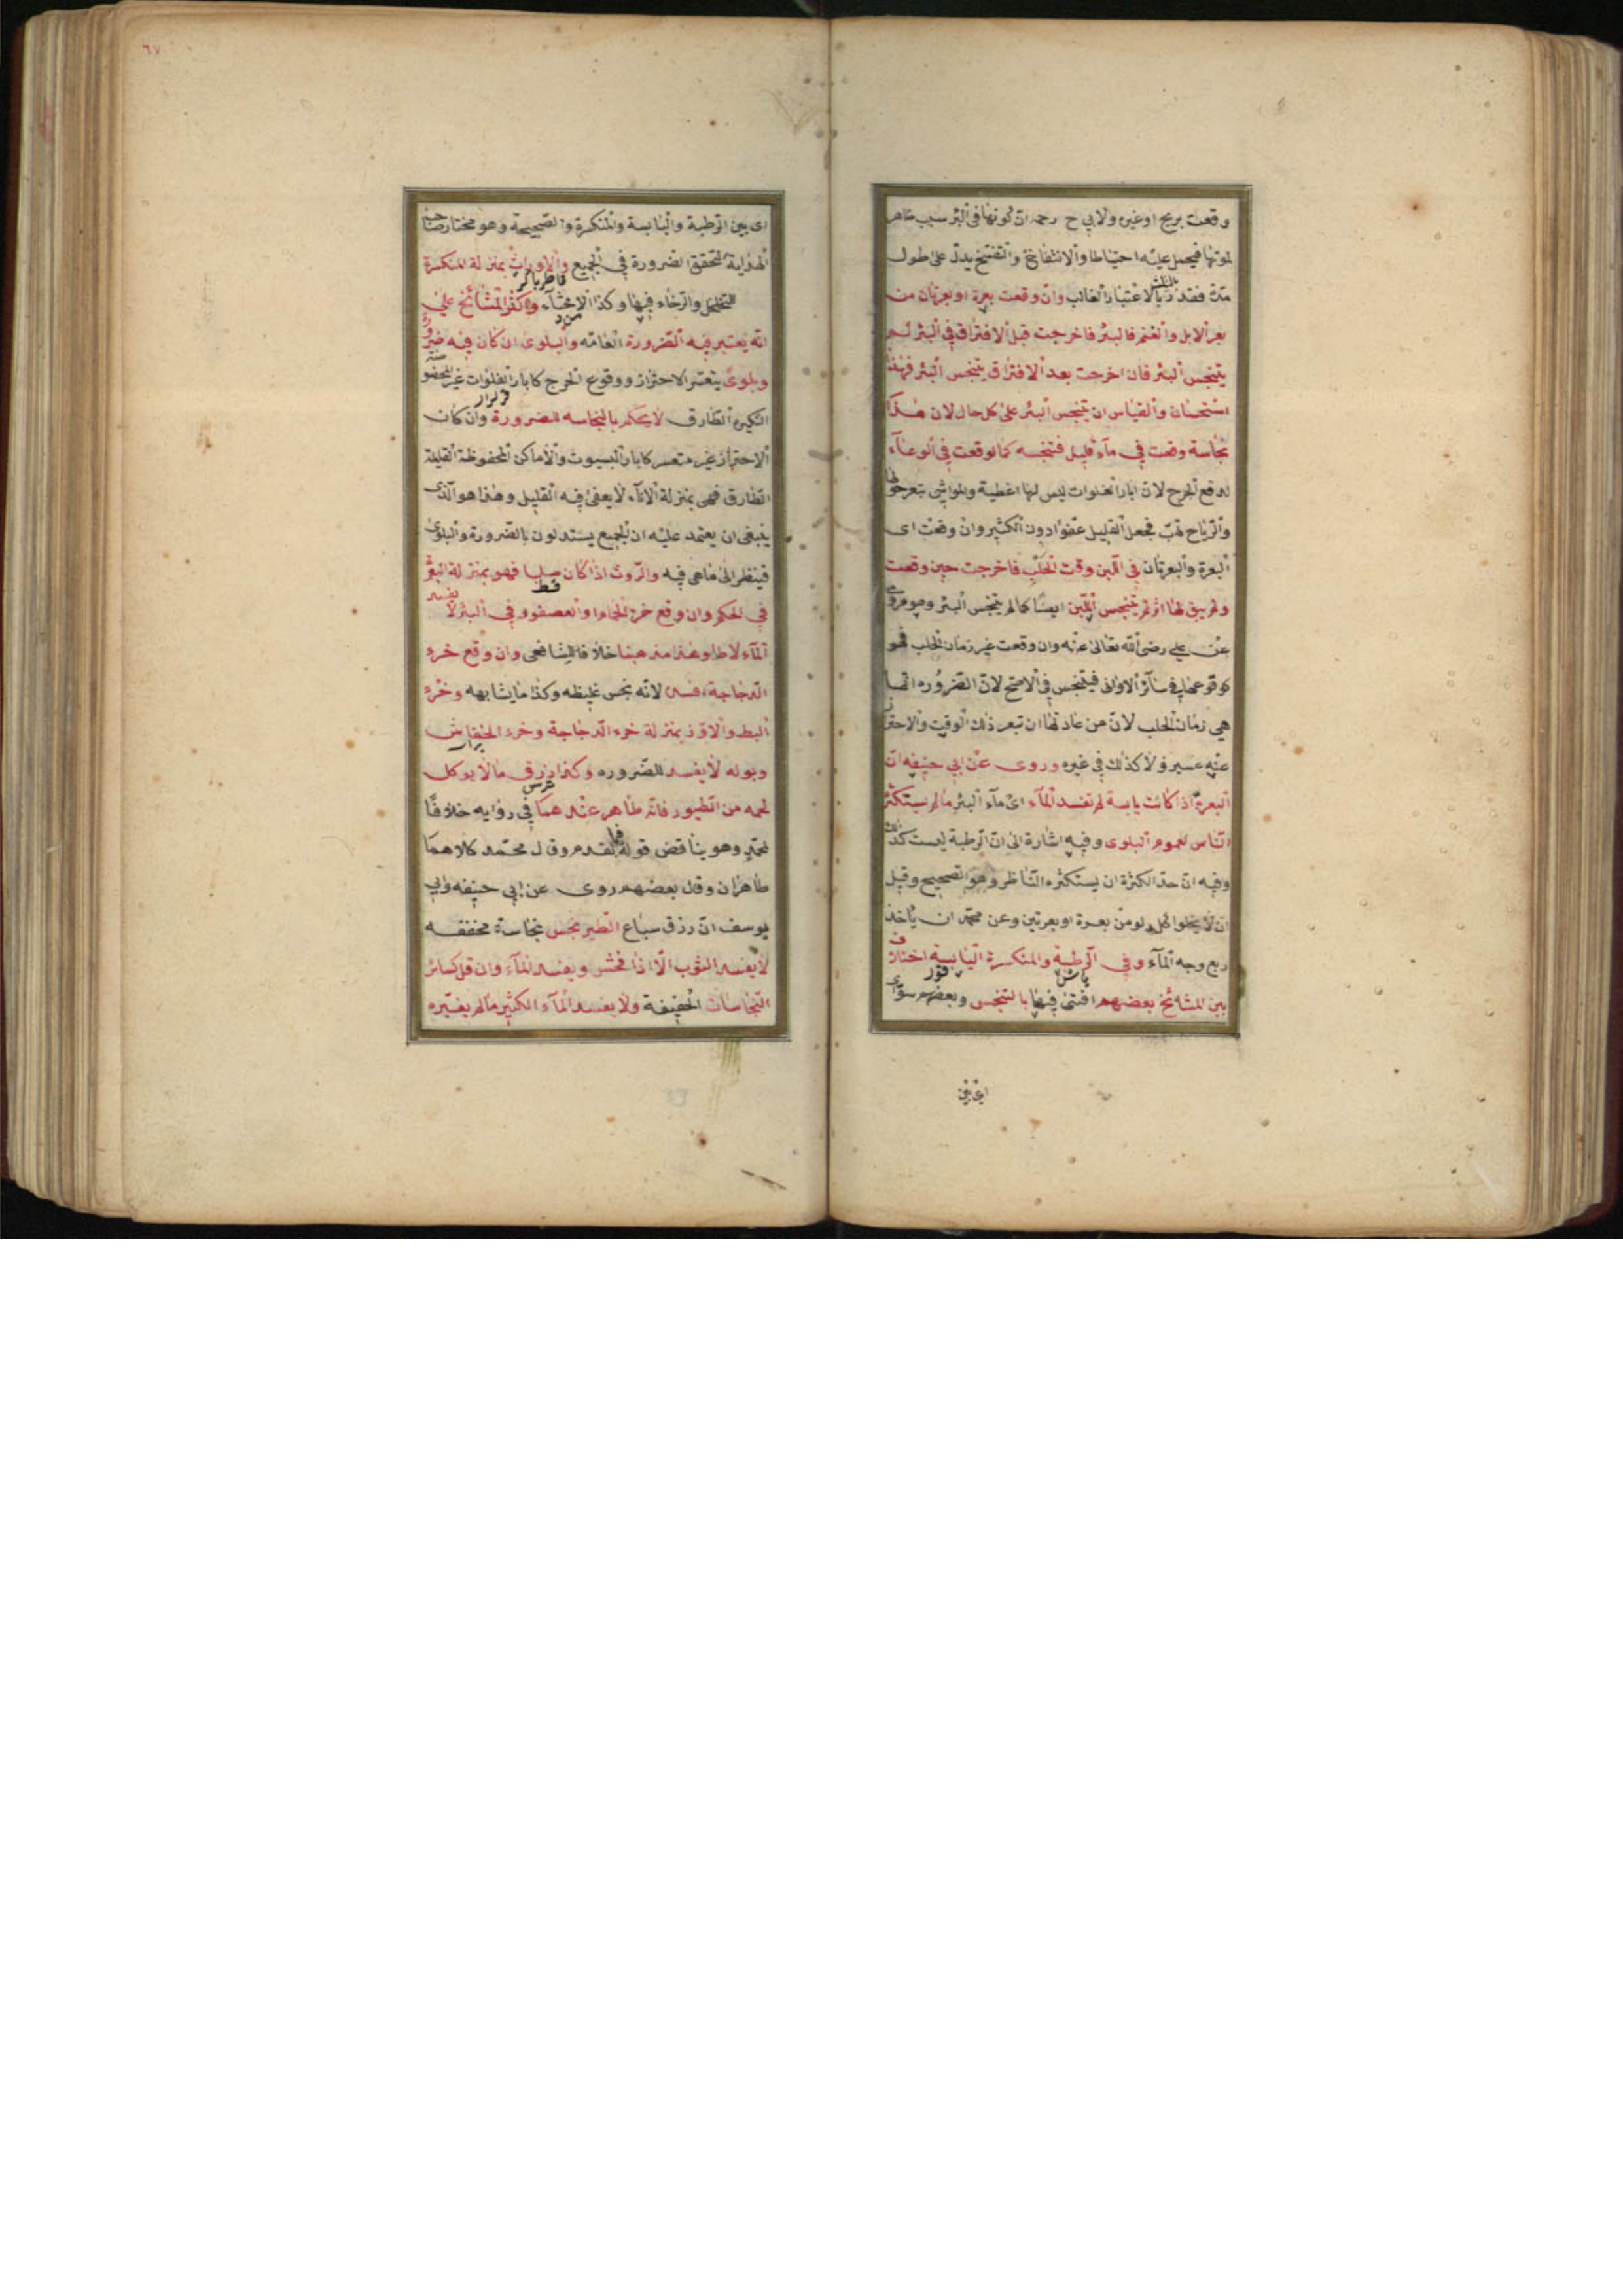 وقعت بريح او غيره ولابي ح رحمه ان كونها في البئر سبب ظاهر
لموتها فيحمل عليه احتياطا والانتفاخ والتفسخ يدل على طول
مدة فقدر بالثلث بالاعتبار الغالب وان وقعت بعرة او بعرتان من
بعر الابل والغنم فالبئر فاخرجت قبل الافتراق في البئر لم
يتنجس البئر فان اخرجت بعد الافتراق يتنجس البئر فهذا
استحسان والقياس ان يتنجس البئر على كل حال لان هذا
نجاسة وقعت في ماء قليل فتنجسه كما لو وقعت في الوعاء
لدفع الحرج لان ابار الفلوات ليس لها اغطية والمواشي تبعر حولها
والرياح تهب فجعل القليل عفوا دون الكثير وان وقعت اى
البعرة والبعرتان في اللبن وقت الحلب فاخرجت حين وقعت
ولم يبق لها اثر لم يتنجس اللبن ايضا كما لم يتنجس البئر وهو مروي
عن علي رضى الله تعالى عنه وان وقعت غير زمان الحلب فهو
كوقوعها في سائر الاواني فيتنجس في الاصح لان الضروره انما
هي زمان الحلب لان من عادتها ان تبعر ذلك الوقت والاحتراز
عنه عسير ولا كذلك في غيره وروى عن ابي حنيفه ان
البعرة اذا كانت يابسة لم تفسد الماء اى ماء البئر ما لم يستكثر
الناس لعموم البلوى وفيه اشارة الى ان الرطبة ليست كذلك
وفيه ان حد الكثرة ان يستكثره الناظر وهو الصحيح وقيل
ان لا يخلوا كل دلو من بعرة او بعرتين وعن محمد ان ياخذ
ربع وجه الماء وفي الرطبة والمنكسرة اليابسة اختلاف
ياش قور
بين المشائخ بعضهم افتى فيها بالتنجس وبعضهم سوى
اى بين
٦٧
اى بين الرطبة واليابسة والمنكسرة والصحيحة وهو مختار صاحب
الهداية لتحقق الضرورة في الجميع والاوراث بمنزلة المنكسرة
للتخلخل والرخاء فيها وكذا الاخثاء واكثر المشائخ على
انه يعتبر فيه الضرورة العامه والبلوى ان كان فيه ضرورة
وبلوى يتعسر الاحتراز ووقوع الحرج كابار الفلوات غير المحفوظة
الكثيره الطارق لا يحكم بالنجاسه للضرورة وان كان
الاحتراز غير متعسر كابار البيوت والاماكن المحفوظة القليلة
الطارق فهى بمنزلة الاناء لا يعفى فيه القليل وهذا هو الذى
ينبغى ان يعتمد عليه ان الجميع يستدلون بالضرورة والبلوى
فينظر الى ما هى فيه والروث اذا كان صلبا فهو بمنزلة البعر
في الحكم وان وقع خرء الحمام او العصفور في البئر لا يفسد
الماء لاطلو عند مذهبنا خلافا للشافعى وان وقع خرء
الدجاجة افسد لانه نجس غليظه وكذا ما يشابهه وخرء
البط والاوز بمنزلة خرء الدجاجة وخرء الخفاش
وبوله لا يفسد للضروره وكذا رزق ما لا يوكل
لحمه من الطيور فانه طاهر عندهما في روايه خلافا
لمحمد وهو يناقض قوله فيما تقدم وقال محمد كلاهما
طاهران وقال بعضهم روى عن ابي حنيفه وابي
يوسف ان رزق سباع الطير نجس نجاسة مخففه
لا يفسد الثوب الا اذا فحش ويفسد الماء وان قل كسائر
النجاسات الخفيفة ولا يفسد الماء الكثير ما لم يغيره